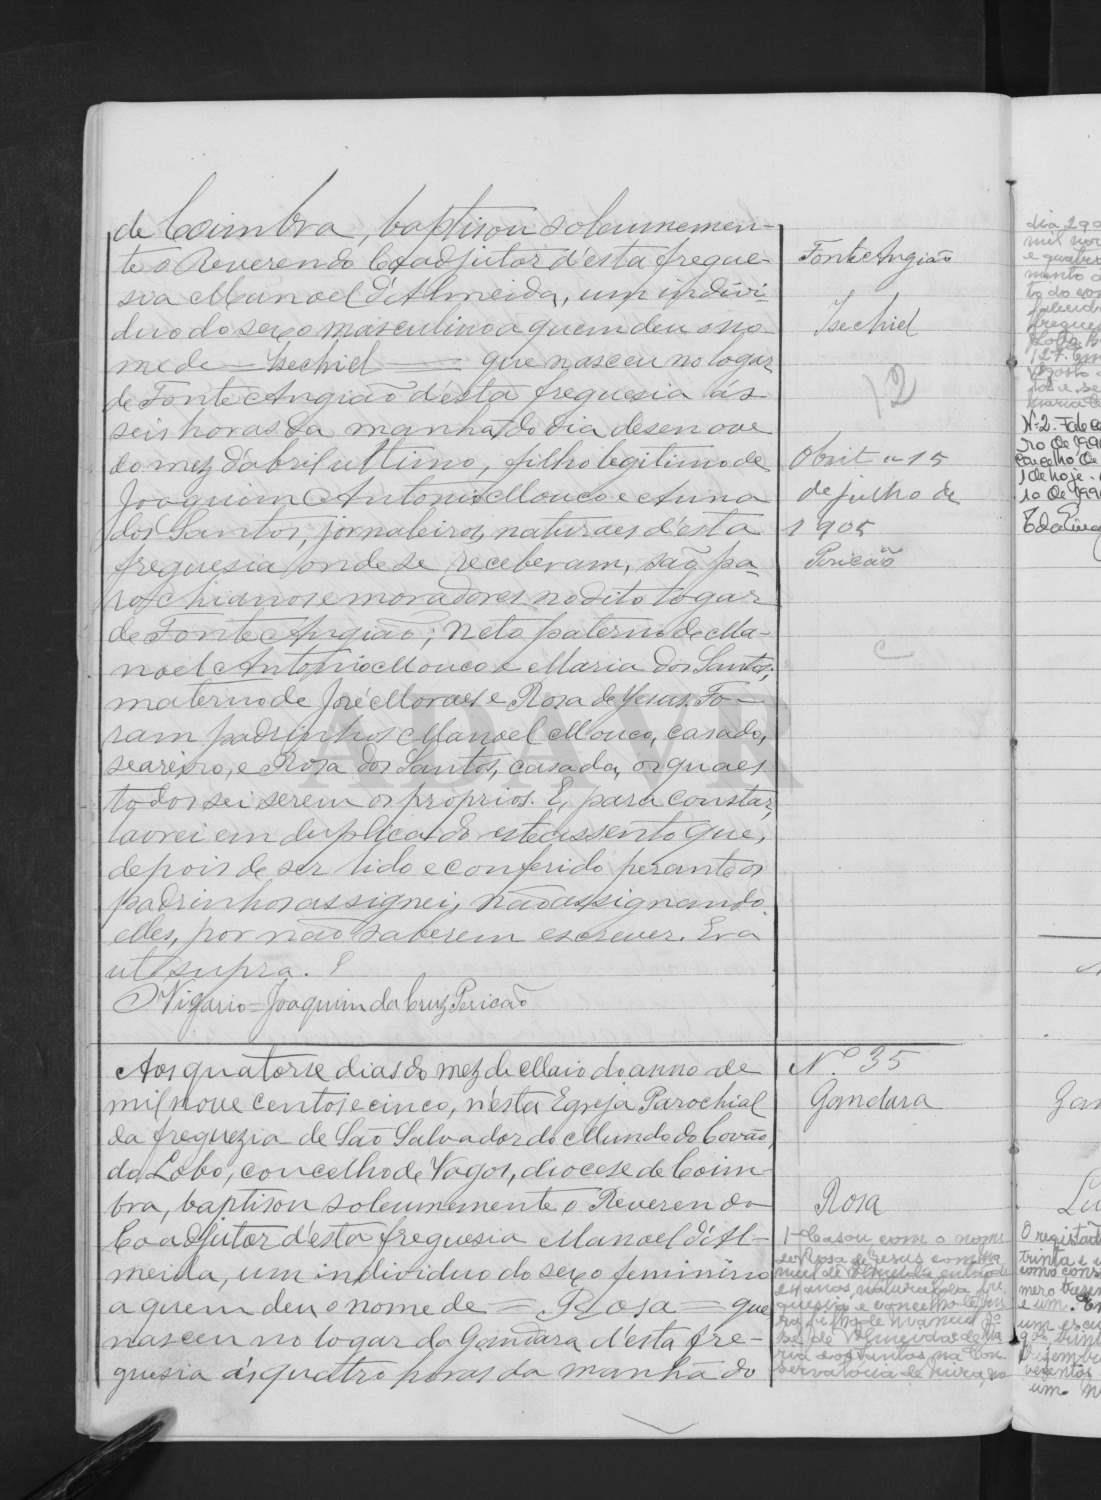 de Coimbra, baptisou solemnemen-
te o Reverendo Coadjutor d'esta fregue-
sia Manoel d'Almeida, um indivi-
duo do sexo masculino a quem deu o no
me de = Isechiel = que nasceu no logar
de Fonte Angião d'esta freguesia ás
seis horas da manhã do dia desenove
do mez d'abril ultimo, filho legitimo de
Joaquim Antonio Mouco e Anna
dos Santos, jornaleiros, naturaes d'esta
freguesia onde se receberam, são pa-
rochianos e moradores no dito logar
de Fonte Angião; Neto paterno de Ma-
noel Antonio Mouco e Maria dos Santos;
materno de José Moraes e Rosa de Jesus. Fo-
ram padrinhos Manoel Mouco, casado,
seareiro, e Rosa dos Santos, casada, os quaes
todos sei serem os proprios. E, para constar,
lavrei em duplicado este assento que,
depois de ser lido e conferido perante os
padrinhos assignei, não assignando
elles, por não saberem escrever. Era
ut supra.
O Vigario = Joaquim da Cruz Pericão
Fonte Angião
Isechiel
12
Obiit a 15
de julho de
1905
Pericão
C
ADAVR
Aos quatorse dias do mez de Maio do anno de
mil nove centos e cinco, n'esta Egreja Parochial
da freguezia de São Salvador do Mundo do Covão
do Lobo, concelho de Vagos, diocese de Coim-
bra, baptisou solemnemente o Reverendo
Coadjutor d'esta freguesia Manoel d'Al-
meida, um individuo do sexo feminino
a quem deu o nome de = Rosa = que
nasceu no logar da Gandara d'esta fre-
guesia ás quatro horas da manhã do
Nº 35
Gandara
Rosa
1 - Casou com o nome
de Rosa de Jesus com Ma
nuel de Almeida
anos, natural da fre
guesia e concelho de
ra filho de Manuel Jo
sé de Almeida e de Ma
ria dos Santos, na Con
servatoria de Mira, no
dia 29
mil nov
Nº 2. Falec
ro de 199
concelho de
1 de hoje.
10 de 199
Gan
Lu
O registad
trinta e
como cons
mero trese
e um. Em
um escu